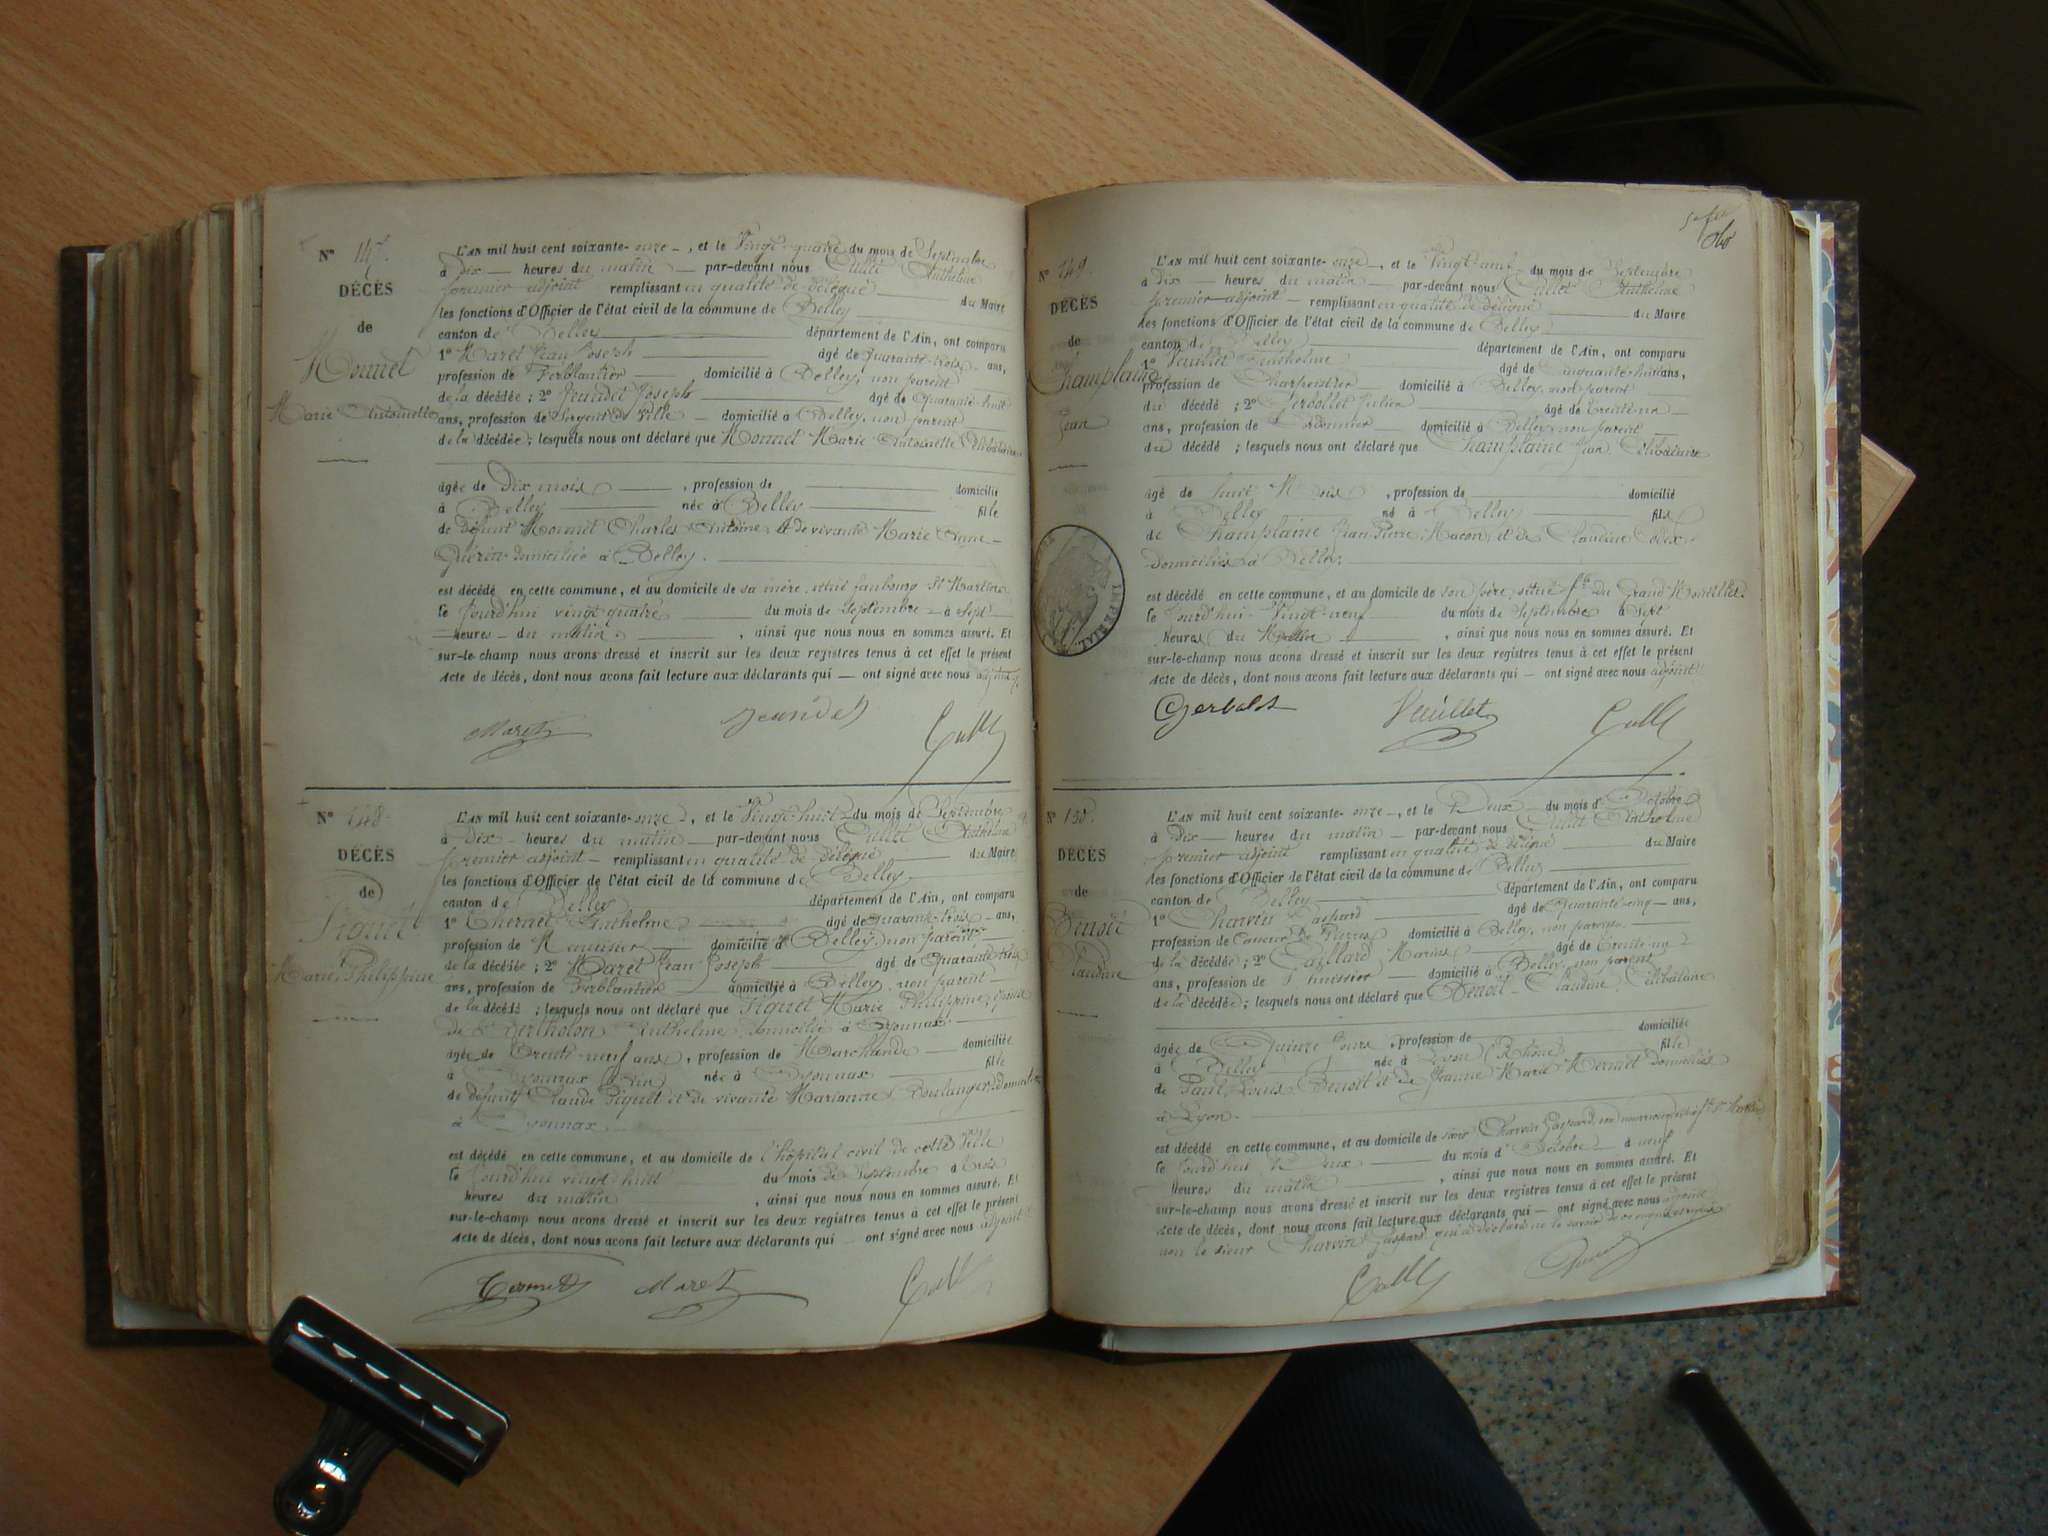 N° 147
DÉCÈS
de
Monnet
Marie Antoinette
L'AN mil huit cent soixante-onze, et le Vingt-quatre du mois de Septembre
à Dix heures du matin par-devant nous Cullet Anthelme
premier adjoint remplissant en qualité de délégué du Maire
les fonctions d'Officier de l'état civil de la commune de Belley
canton de Belley département de l'Ain, ont comparu
1° Maret Jean Joseph âgé de Quarante-trois ans,
profession de Ferblantier domicilié à Belley, non parent
de la décédée ; 2° Jeandet Joseph âgé de Quarante-huit
ans, profession de Sergent de Ville domicilié à Belley, non parent
de la décédée ; lesquels nous ont déclaré que Monnet Marie Antoinette Célibataire
âgée de Dix mois, profession de domicilié
à Belley née à Belley fille
de défunt Monnet Charles Antoine et de vivante Marie Anne
domiciliée à Belley.
est décédé en cette commune, et au domicile de sa mère, situé faubourg St Martin
le Jourd'hui vingt-quatre du mois de Septembre à Sept
heures du matin, ainsi que nous nous en sommes assuré. Et
sur-le-champ nous avons dressé et inscrit sur les deux registres tenus à cet effet le présent
Acte de décès, dont nous avons fait lecture aux déclarants qui — ont signé avec nous adjoint
Maret Jeandet Cullet
N° 148
DÉCÈS
de
Piquet
Marie Philippine
L'AN mil huit cent soixante-onze, et le Vingt-huit du mois de Septembre
à Dix heures du matin par-devant nous Cullet Anthelme
premier adjoint remplissant en qualité de délégué du Maire
les fonctions d'Officier de l'état civil de la commune de Belley
canton de Belley département de l'Ain, ont comparu
1° Anthelme âgé de Quarante-trois ans,
profession de Menuisier domicilié à Belley, non parent
de la décédée ; 2° Maret Jean Joseph âgé de Quarante trois
ans, profession de Ferblantier domicilié à Belley, non parent
de la décédé ; lesquels nous ont déclaré que Piquet Marie Philippine, épouse
de Sr Bertholon Anthelme domicilié à Oyonnax
âgée de Trente-neuf ans, profession de Marchande domiciliée
à Oyonnax (Ain) née à Oyonnax fille
de défunt Claude Piquet et de vivante Marianne Boulanger domiciliée
à Oyonnax
est décédé en cette commune, et au domicile de l'hôpital civil de cette Ville
le Jourd'hui vingt-huit du mois de Septembre à trois
heures du matin, ainsi que nous nous en sommes assuré. Et
sur-le-champ nous avons dressé et inscrit sur les deux registres tenus à cet effet le présent
Acte de décès, dont nous avons fait lecture aux déclarants qui ont signé avec nous adjoint
Maret Cullet
N° 149.
DÉCÈS
de
Champlaine
Jean
L'AN mil huit cent soixante-onze, et le Vingt-neuf du mois de Septembre
à Dix heures du matin par-devant nous Cullet Anthelme
premier adjoint remplissant en qualité de délégué du Maire
les fonctions d'Officier de l'état civil de la commune de Belley
canton de Belley département de l'Ain, ont comparu
1° Veuillet Anthelme âgé de Cinquante-huit ans,
profession de Charpentier domicilié à Belley, non parent
du décédé ; 2° Julien âgé de trente-un
ans, profession de Cordonnier domicilié à Belley non parent
du décédé ; lesquels nous ont déclaré que Champlaine Jean Célibataire
âgé de huit Mois, profession de domicilié
à Belley né à Belley fils
de Champlaine Jean Pierre, Maçon, et de Claudine
domiciliés à Belley.
est décédé en cette commune, et au domicile de son père, situé fg du Grand
le Jourd'hui Vingt-neuf du mois de Septembre à Sept
heures du Matin, ainsi que nous nous en sommes assuré. Et
sur-le-champ nous avons dressé et inscrit sur les deux registres tenus à cet effet le présent
Acte de décès, dont nous avons fait lecture aux déclarants qui — ont signé avec nous adjoint
Veuillet Cullet
IMPERIAL
N° 150.
DÉCÈS
de
Benoit
Claudine
L'AN mil huit cent soixante-onze, et le Deux du mois d'Octobre
à Dix heures du matin par-devant nous Cullet Anthelme
premier adjoint remplissant en qualité de délégué du Maire
les fonctions d'Officier de l'état civil de la commune de Belley
canton de Belley département de l'Ain, ont comparu
1° Charvin Gaspard âgé de Quarante-cinq ans,
profession de de Pierres domicilié à Belley, non parent
de la décédée ; 2° Gaillard Marius âgé de trente-un
ans, profession de huissier domicilié à Belley, non parent
de la décédée ; lesquels nous ont déclaré que Benoit Claudine, Célibataire
âgée de Quinze Jours, profession de domiciliée
à Belley née à Lyon (Rhône) fille
de Paul Louis Benoit et de Jeanne Marie domiciliés
à Lyon.
est décédé en cette commune, et au domicile de sieur Charvin Gaspard, son nourricier, situé fg St Martin
le Jourd'hui Deux du mois d'Octobre à neuf
heures du matin, ainsi que nous nous en sommes assuré. Et
sur-le-champ nous avons dressé et inscrit sur les deux registres tenus à cet effet le présent
Acte de décès, dont nous avons fait lecture aux déclarants qui — ont signé avec nous adjoint
non le sieur Charvin Gaspard qui a déclaré ne le savoir de ce requis
Cullet